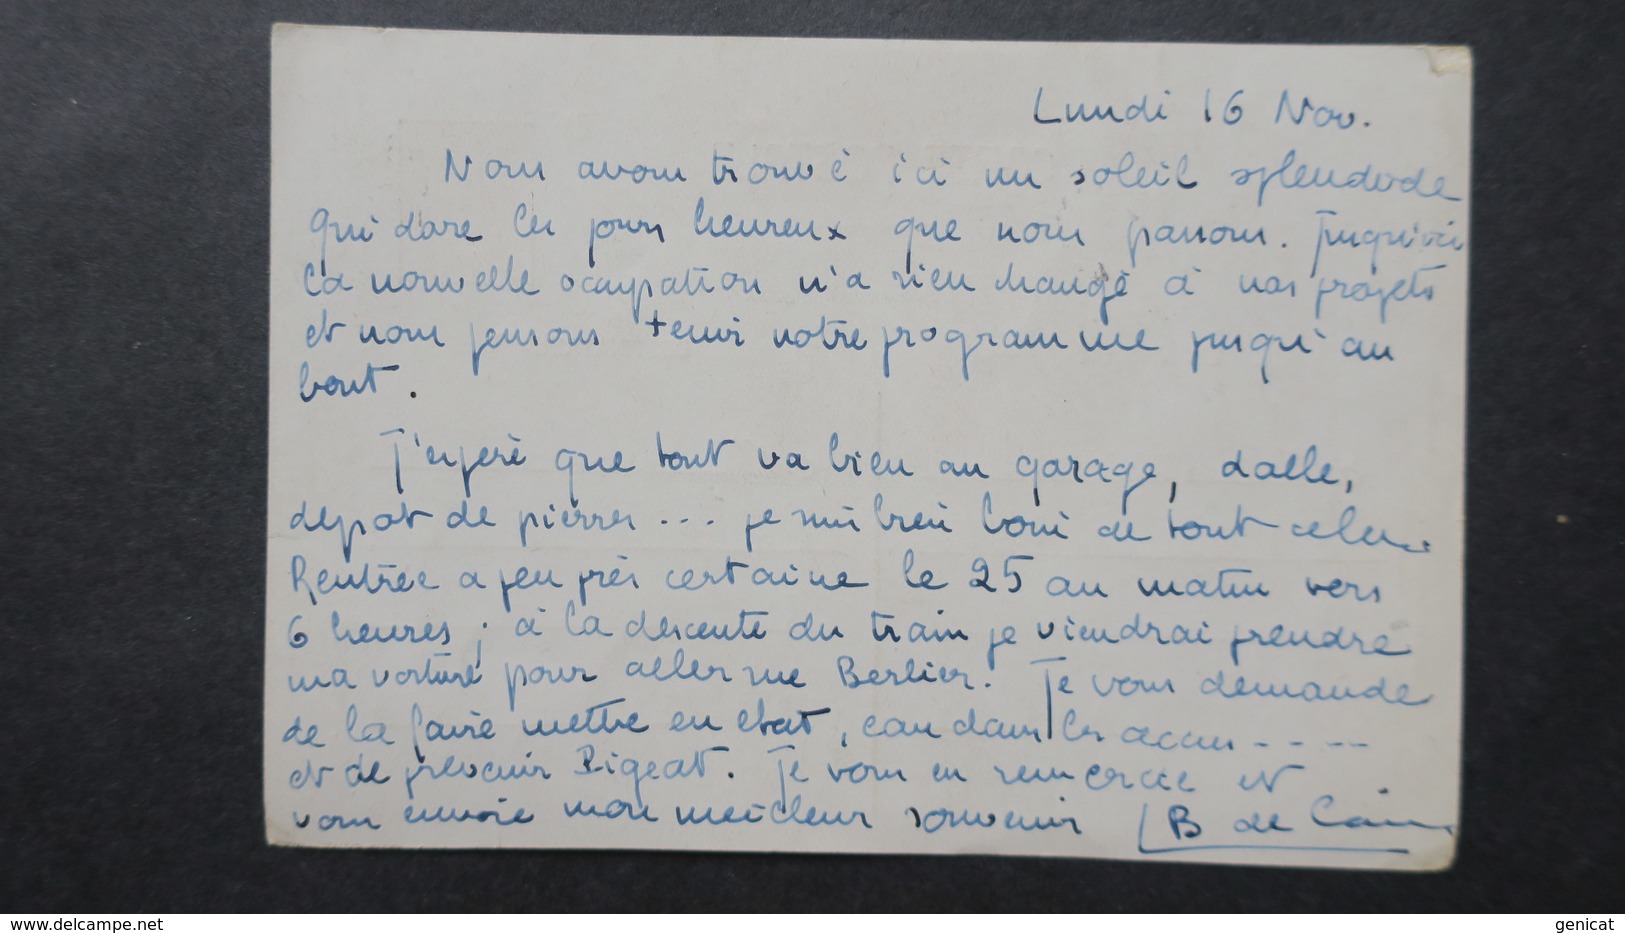 Lundi 16 Nov.
Nous avons trouvé ici un soleil splendide
qui dore les jours heureux que nous passons. Jusqu'ici
la nouvelle occupation n'a rien changé à nos projets
et nous pensons tenir notre programme jusqu'au
bout.
J'espère que tout va bien au garage, dalle,
depot de pierres ... je suis bien loin de tout cela.
Rentrée a peu près certaine le 25 au matin vers
6 heures ; à la descente du train je viendrai prendre
ma voiture pour aller rue Berlier. Je vous demande
de la faire mettre en etat, eau dans les accus -----
et de prevenir Bigeat. Je vous en remercie et
vous envoie mon meilleur souvenir B de
www.delcampe.net
genicat